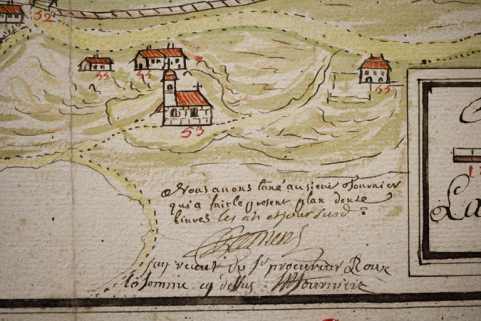 52
55
53
55
Nous avons taxé au sieur Fournier
qui a fait le present plan douze
livres les an et jour susd.
J'ay receut du Sr procureur Roux
la somme cy dessus. Fournier
La